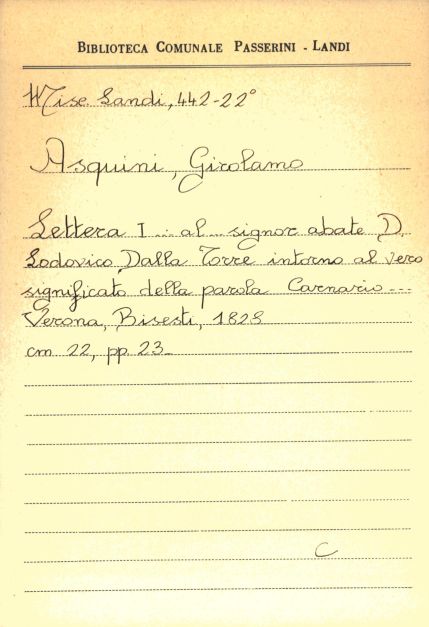 BIBLIOTECA COMUNALE PASSERINI - LANDI
Misc. Landi, 442-22°
Asquini, Girolamo
Lettera I ... al ... signor abate D.
Lodovico Dalla Torre intorno al vero
significato della parola Carnario ...
Verona, Bisesti, 1828
cm 22, pp. 23
C